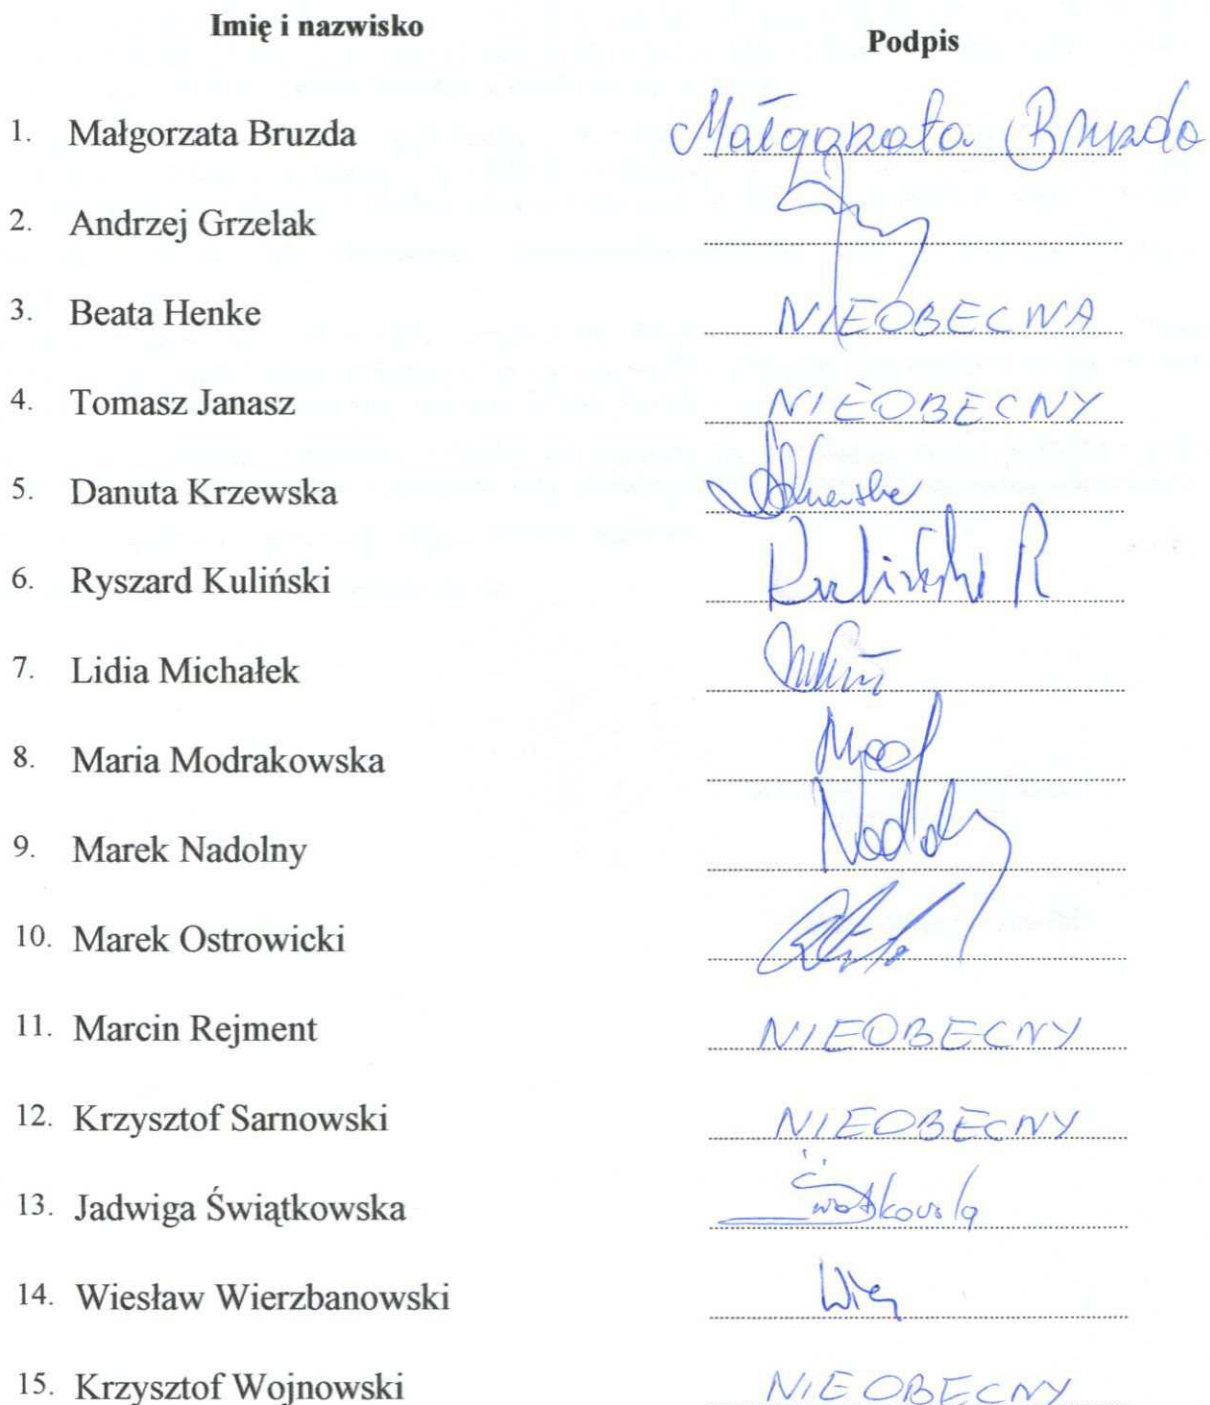 Imię i nazwisko Podpis
1. Małgorzata Bruzda Małgorzata Bruzda
2. Andrzej Grzelak
3. Beata Henke NIEOBECNA
4. Tomasz Janasz NIEOBECNY
5. Danuta Krzewska
6. Ryszard Kuliński Kuliński R
7. Lidia Michałek
8. Maria Modrakowska
9. Marek Nadolny
10. Marek Ostrowicki
11. Marcin Rejment NIEOBECNY
12. Krzysztof Sarnowski NIEOBECNY
13. Jadwiga Świątkowska Świątkowska
14. Wiesław Wierzbanowski
15. Krzysztof Wojnowski NIEOBECNY